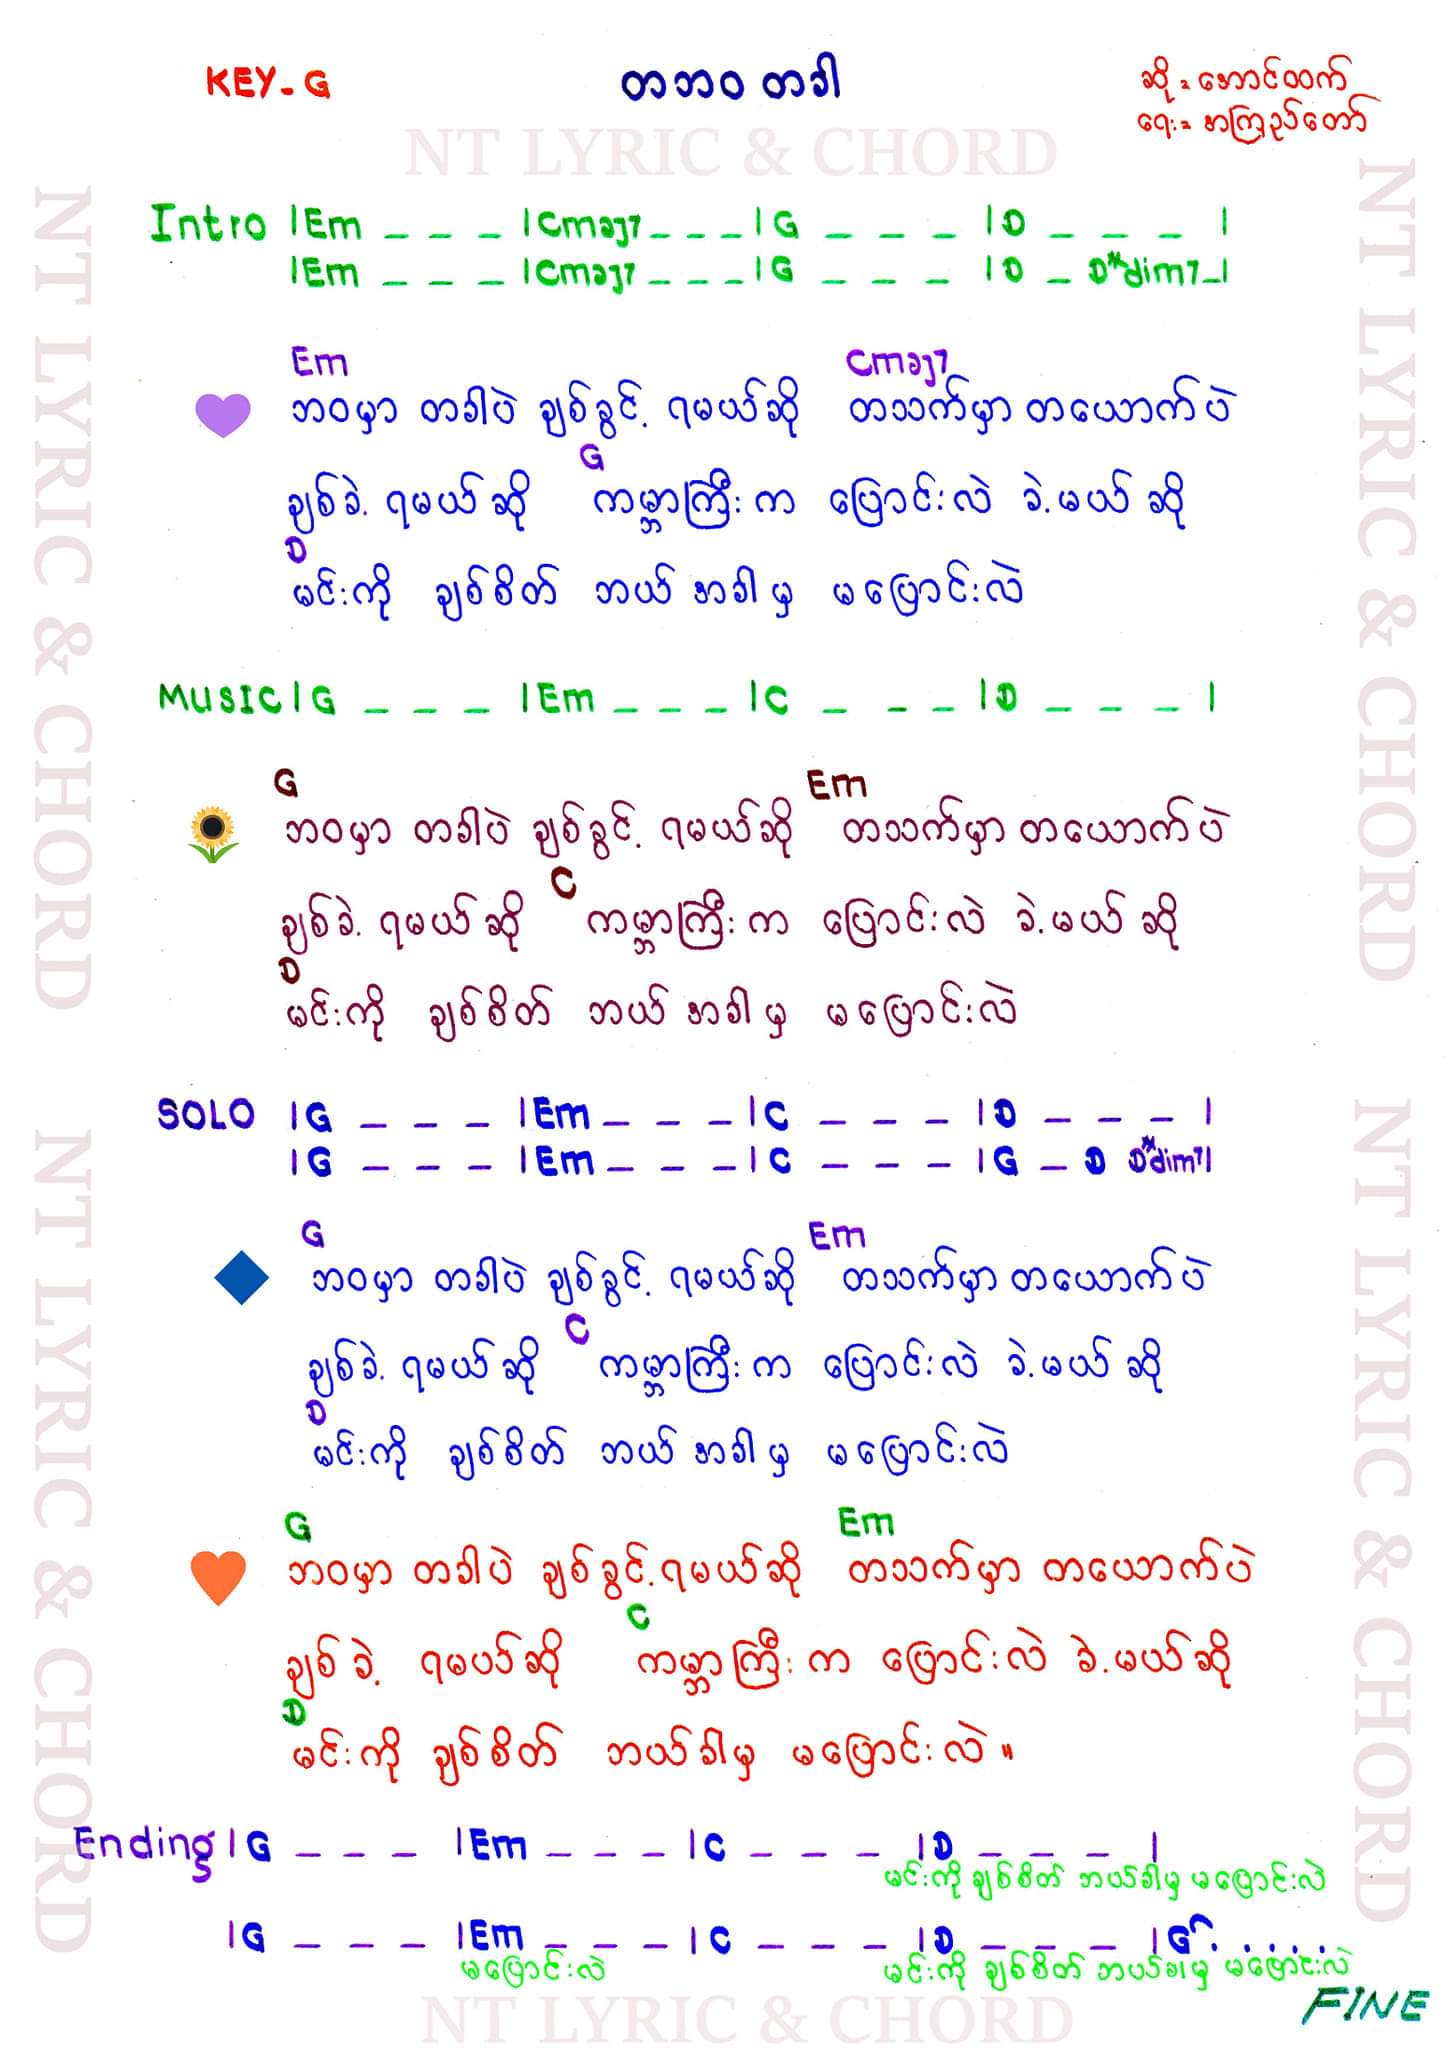 KEY - G
တဘဝ တခါ
ဆို = အောင်ထက်
ရေး = အကြည်တော်
NT LYRIC & CHORD
Intro |Em _ _ _ |Cmaj7 _ _ _ |G _ _ _ |D _ _ _ |
|Em _ _ _ |Cmaj7 _ _ _ |G _ _ _ |D _ D#dim7 _ |
Em Cmaj7
ဘဝမှာ တခါပဲ ချစ်ခွင့် ရမယ်ဆို တသက်မှာ တယောက်ပဲ
G
ချစ်ခဲ့ ရမယ် ဆို ကမ္ဘာကြီး က ပြောင်းလဲ ခဲ့မယ် ဆို
D
မင်းကို ချစ်စိတ် ဘယ် အခါ မှ မပြောင်းလဲ
MUSIC |G _ _ _ |Em _ _ _ |C _ _ _ |D _ _ _ |
G Em
ဘဝမှာ တခါပဲ ချစ်ခွင့် ရမယ်ဆို တသက်မှာ တယောက်ပဲ
C
ချစ်ခဲ့ ရမယ် ဆို ကမ္ဘာကြီး က ပြောင်းလဲ ခဲ့မယ် ဆို
D
မင်းကို ချစ်စိတ် ဘယ် အခါ မှ မပြောင်းလဲ
SOLO |G _ _ _ |Em _ _ _ |C _ _ _ |D _ _ _ |
|G _ _ _ |Em _ _ _ |C _ _ _ |G _ D D#dim7|
G Em
ဘဝမှာ တခါပဲ ချစ်ခွင့် ရမယ်ဆို တသက်မှာ တယောက်ပဲ
C
ချစ်ခဲ့ ရမယ် ဆို ကမ္ဘာကြီး က ပြောင်းလဲ ခဲ့မယ် ဆို
D
မင်းကို ချစ်စိတ် ဘယ် အခါ မှ မပြောင်းလဲ
G Em
ဘဝမှာ တခါပဲ ချစ်ခွင့် ရမယ်ဆို တသက်မှာ တယောက်ပဲ
C
ချစ် ခဲ့ ရမယ်ဆို ကမ္ဘာကြီး က ပြောင်းလဲ ခဲ့မယ်ဆို
D
မင်းကို ချစ်စိတ် ဘယ်ခါမှ မပြောင်းလဲ ။
Ending |G _ _ _ |Em _ _ _ |C _ _ _ |D _ _ _ |
မင်းကို ချစ်စိတ် ဘယ်ခါမှ မပြောင်းလဲ
|G _ _ _ |Em _ _ _ |C _ _ _ |D _ _ _ |G . . . . .
မပြောင်းလဲ မင်းကို ချစ်စိတ် ဘယ်ခါမှ မပြောင်းလဲ
FINE
NT LYRIC & CHORD
NT LYRIC & CHORD
NT LYRIC & CHORD
NT LYRIC & CHORD
NT LYRIC & CHORD